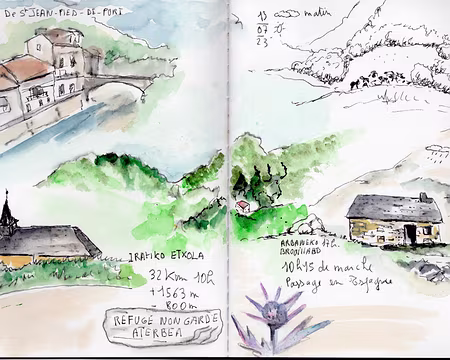 DE ST JEAN-PIED-DE-PORT
13 matin
07
23
IRATIKO ETXOLA
32 Km 10h
+1563 m
- 800m
REFUGE NON GARDÉ
ATERBEA
17h.
BROUILLARD
10h15 de marche
Passage en Espagne